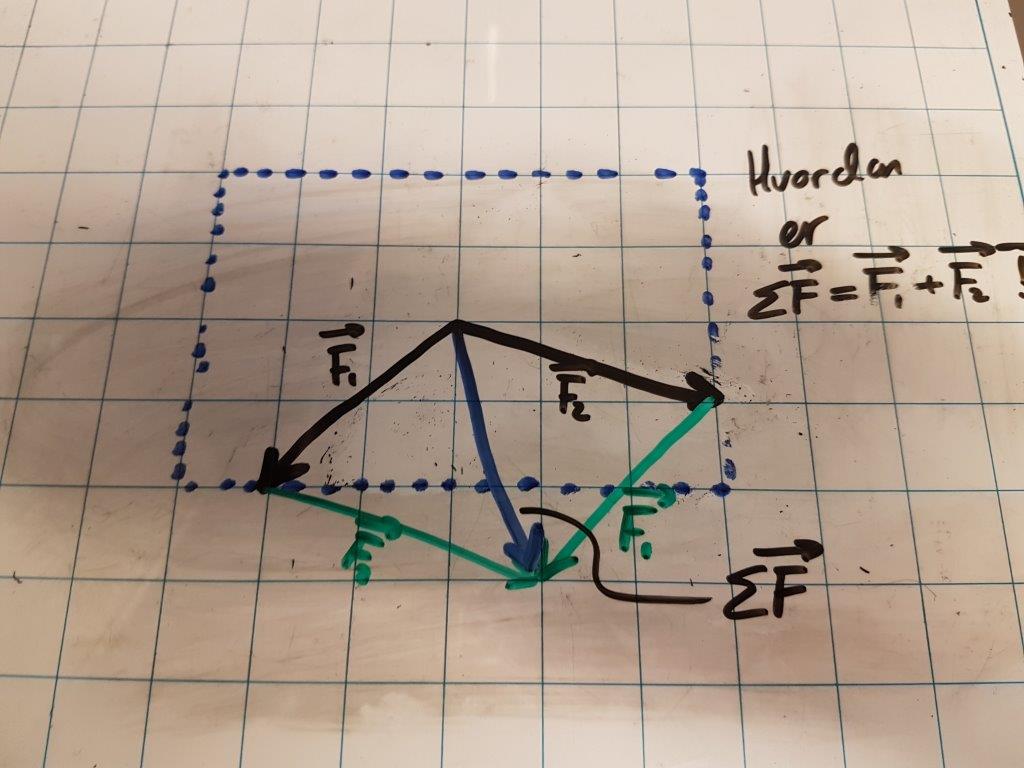 Hvordan
er
ΣF⃗ = F⃗₁ + F⃗₂
F⃗₁
F⃗₂
F⃗₁
ΣF⃗